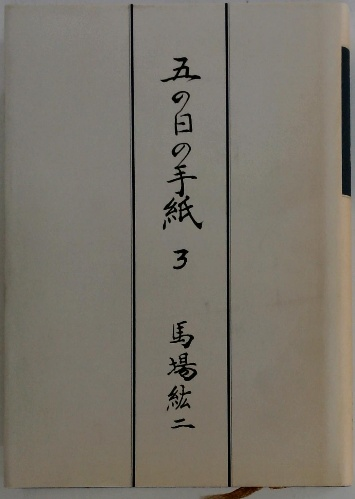 五の日の手紙 3
馬場紘二